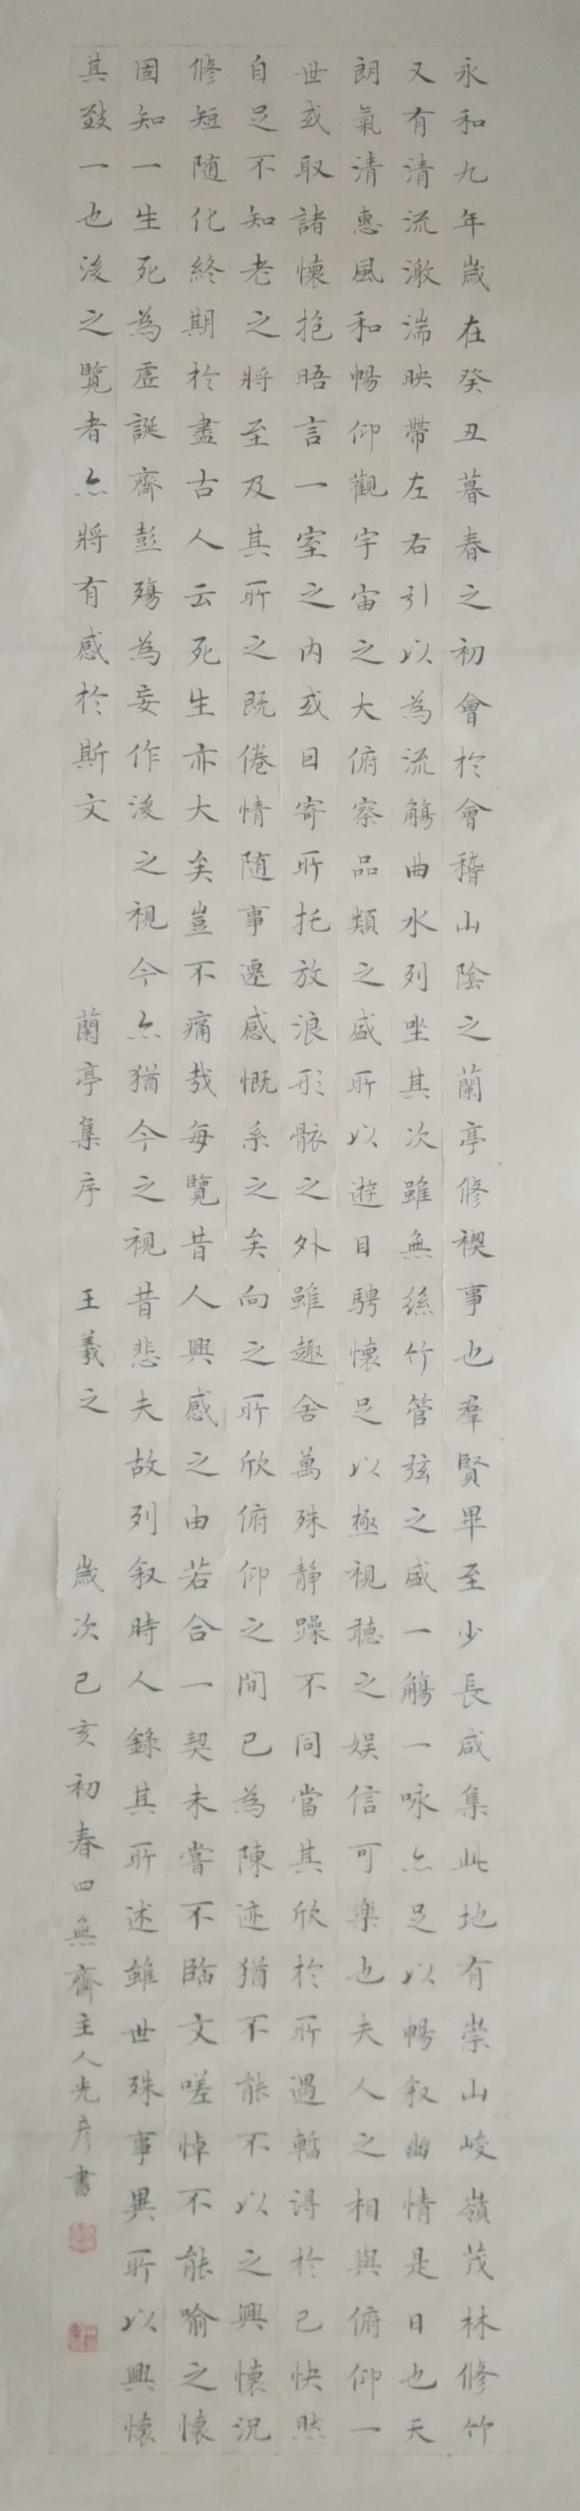 永和九年歲在癸丑暮春之初會於會稽山陰之蘭亭修禊事也羣賢畢至少長咸集此地有崇山峻嶺茂林修竹
又有清流激湍映帶左右引以為流觴曲水列坐其次雖無絲竹管弦之盛一觴一咏亦足以暢叙幽情是日也天
朗氣清惠風和暢仰觀宇宙之大俯察品類之盛所以遊目騁懷足以極視聽之娱信可樂也夫人之相與俯仰一
世或取諸懷抱晤言一室之內或因寄所托放浪形骸之外雖趣舍萬殊静躁不同當其欣於所遇暫得於己快然
自足不知老之將至及其所之既倦情随事遷感慨系之矣向之所欣俯仰之間已為陳迹猶不能不以之興懷況
修短随化終期於盡古人云死生亦大矣豈不痛哉每覽昔人興感之由若合一契未嘗不臨文嗟悼不能喻之懷
固知一生死為虛誕齊彭殤為妄作後之視今亦猶今之視昔悲夫故列叙時人錄其所述雖世殊事異所以興懷
其致一也後之覽者亦將有感於斯文 蘭亭集序 王羲之 歲次己亥初春四無齋主人光彦書